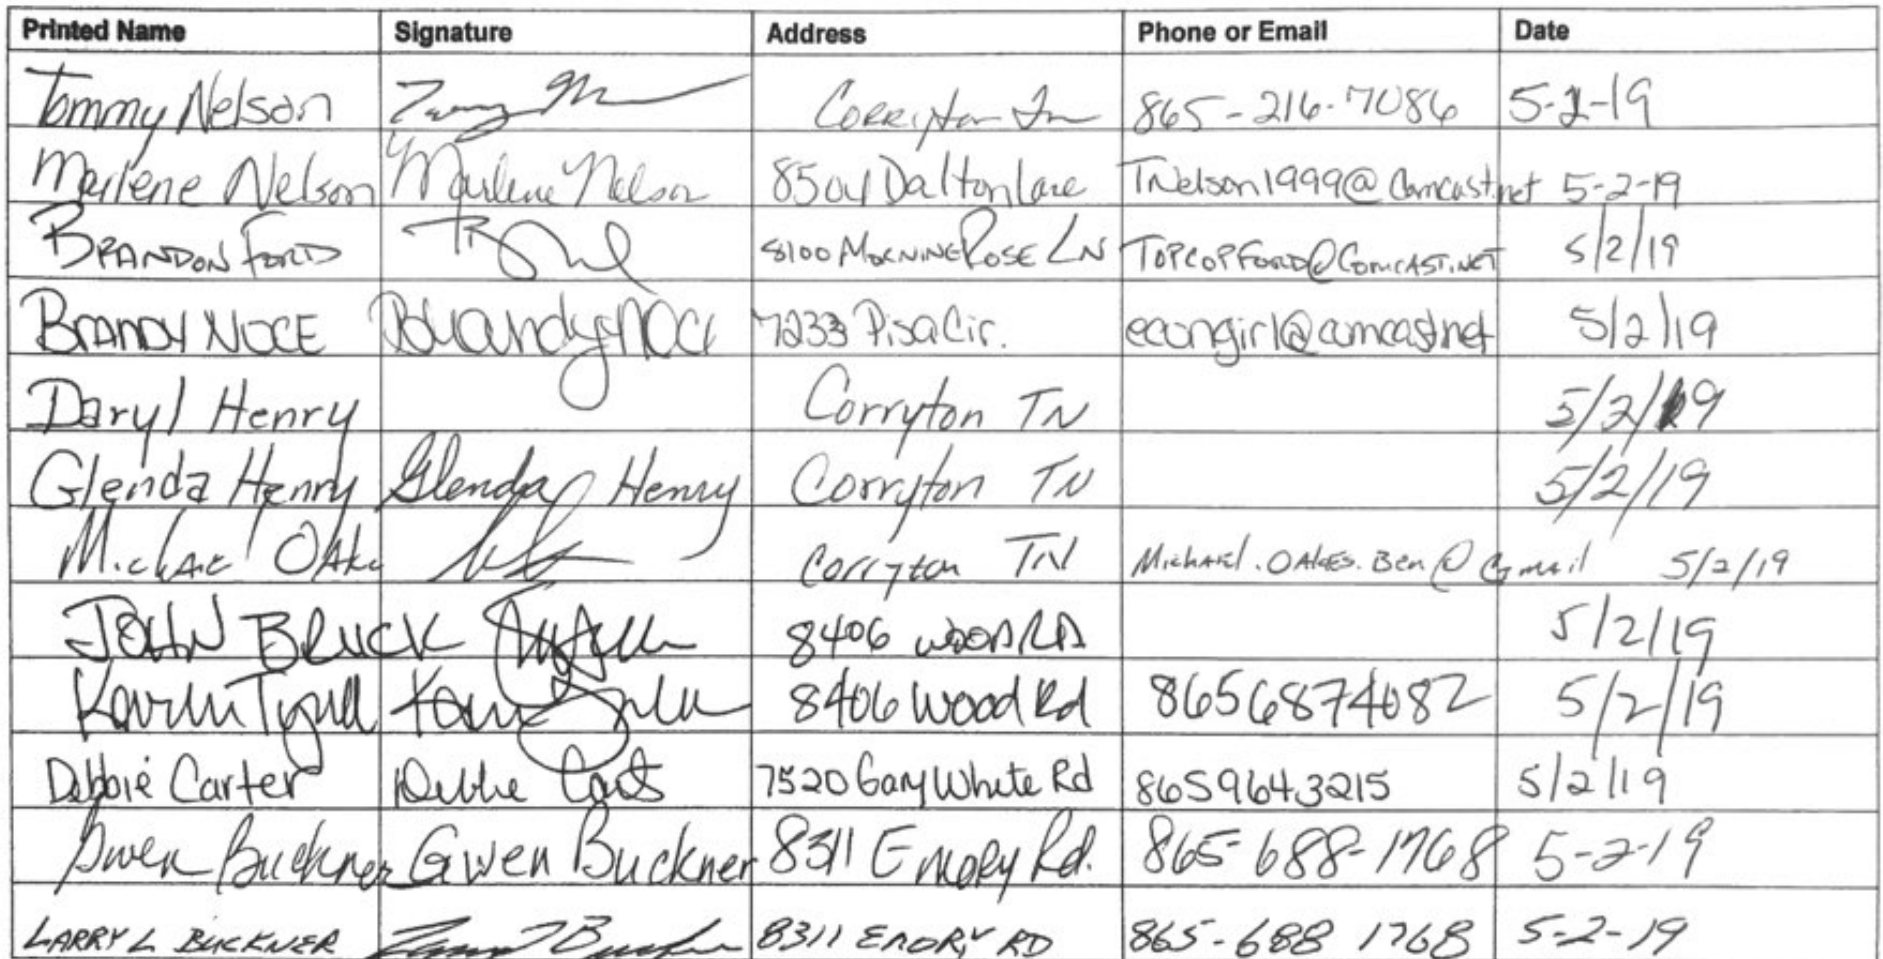 Printed Name Signature Address Phone or Email Date
Tommy Nelson Corryton Tn 865-216-7086 5-2-19
Marlene Nelson Marlene Nelson 8504 Dalton Lane TNelson1999@comcast.net 5-2-19
BRANDON FORD 8100 MORNING ROSE LN TOPCOPFORD@COMCAST.NET 5/2/19
BRANDY NOCE Brandy Noce 7233 Pisa Cir. econgirl@comcast.net 5/2/19
Daryl Henry Corryton TN 5/2/19
Glenda Henry Glenda Henry Corryton TN 5/2/19
Michael Corryton TN Michael.OAKES.Ben@Gmail 5/2/19
JOHN 8406 WOOD RD 5/2/19
8406 Wood Rd 8656874082 5/2/19
Debbie Carter Debbie 7520 Gary White Rd 8659643215 5/2/19
Gwen Buckner Gwen Buckner 8311 Emory Rd. 865-688-1768 5-2-19
LARRY L BUCKNER 8311 EMORY RD 865-688 1768 5-2-19